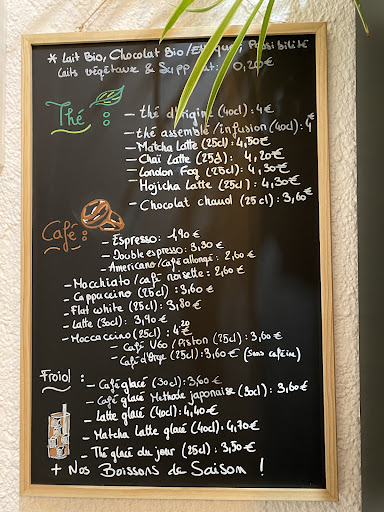 * Lait Bio, Chocolat Bio / Possibilité
Laits végétaux & Suppl : 0,20€
Thé :
- thé d'origine (40cl) : 4€
- thé assemblé / infusion (40cl) : 4€
- Matcha Latte (25cl) : 4,50€
- Chaï Latte (25cl) : 4,20€
- London Fog (25cl) : 4,30€
- Hojicha Latte (25cl) : 4,30€
- Chocolat chaud (25cl) : 3,60€
Café :
- Espresso : 1,90€
- Double espresso : 3,30€
- Americano / café allongé : 2,60€
- Macchiato / café noisette : 2,60€
- Cappuccino (25cl) : 3,60€
- Flat white (25cl) : 3,80€
- Latte (30cl) : 3,90€
- Moccaccino (25cl) : 4,20€
- Café V60 / Piston (25cl) : 3,60€
- Café d'Orge (25cl) : 3,60€ (sans caféine)
Froid :
- Café glacé (30cl) : 3,60€
- Café glacé Méthode japonaise (30cl) : 3,60€
- Latte glacé (40cl) : 4,40€
- Matcha Latte glacé (40cl) : 4,70€
- Thé glacé du jour (25cl) : 3,50€
+ Nos Boissons de Saison !